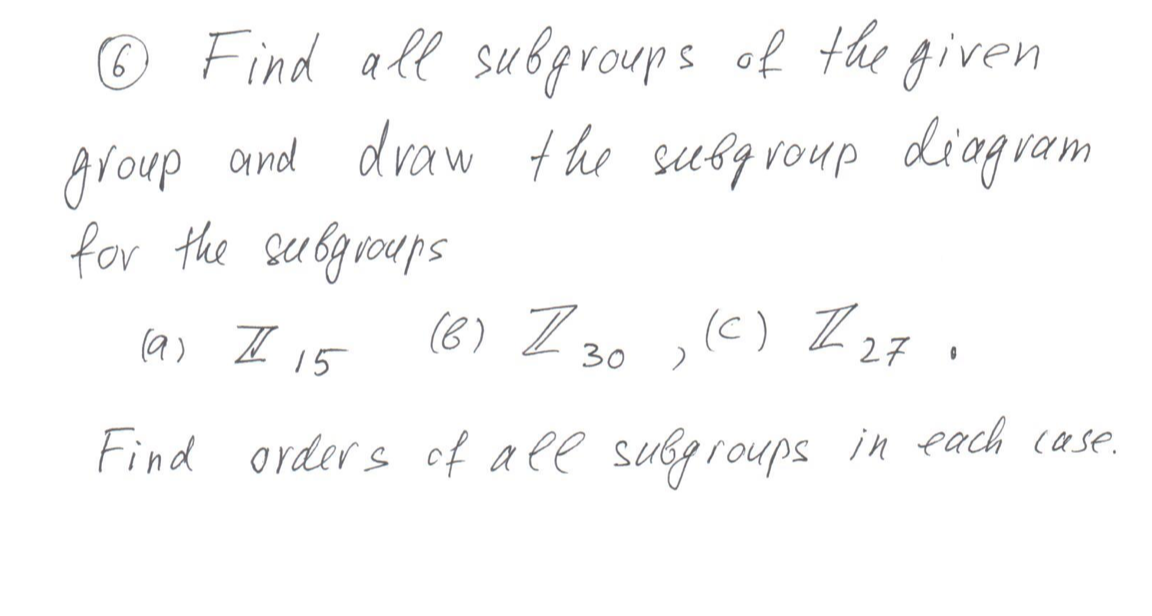 ⑥ Find all subgroups of the given
group and draw the subgroup diagram
for the subgroups
(a) ℤ₁₅ (b) ℤ₃₀ , (c) ℤ₂₇ .
Find orders of all subgroups in each case.